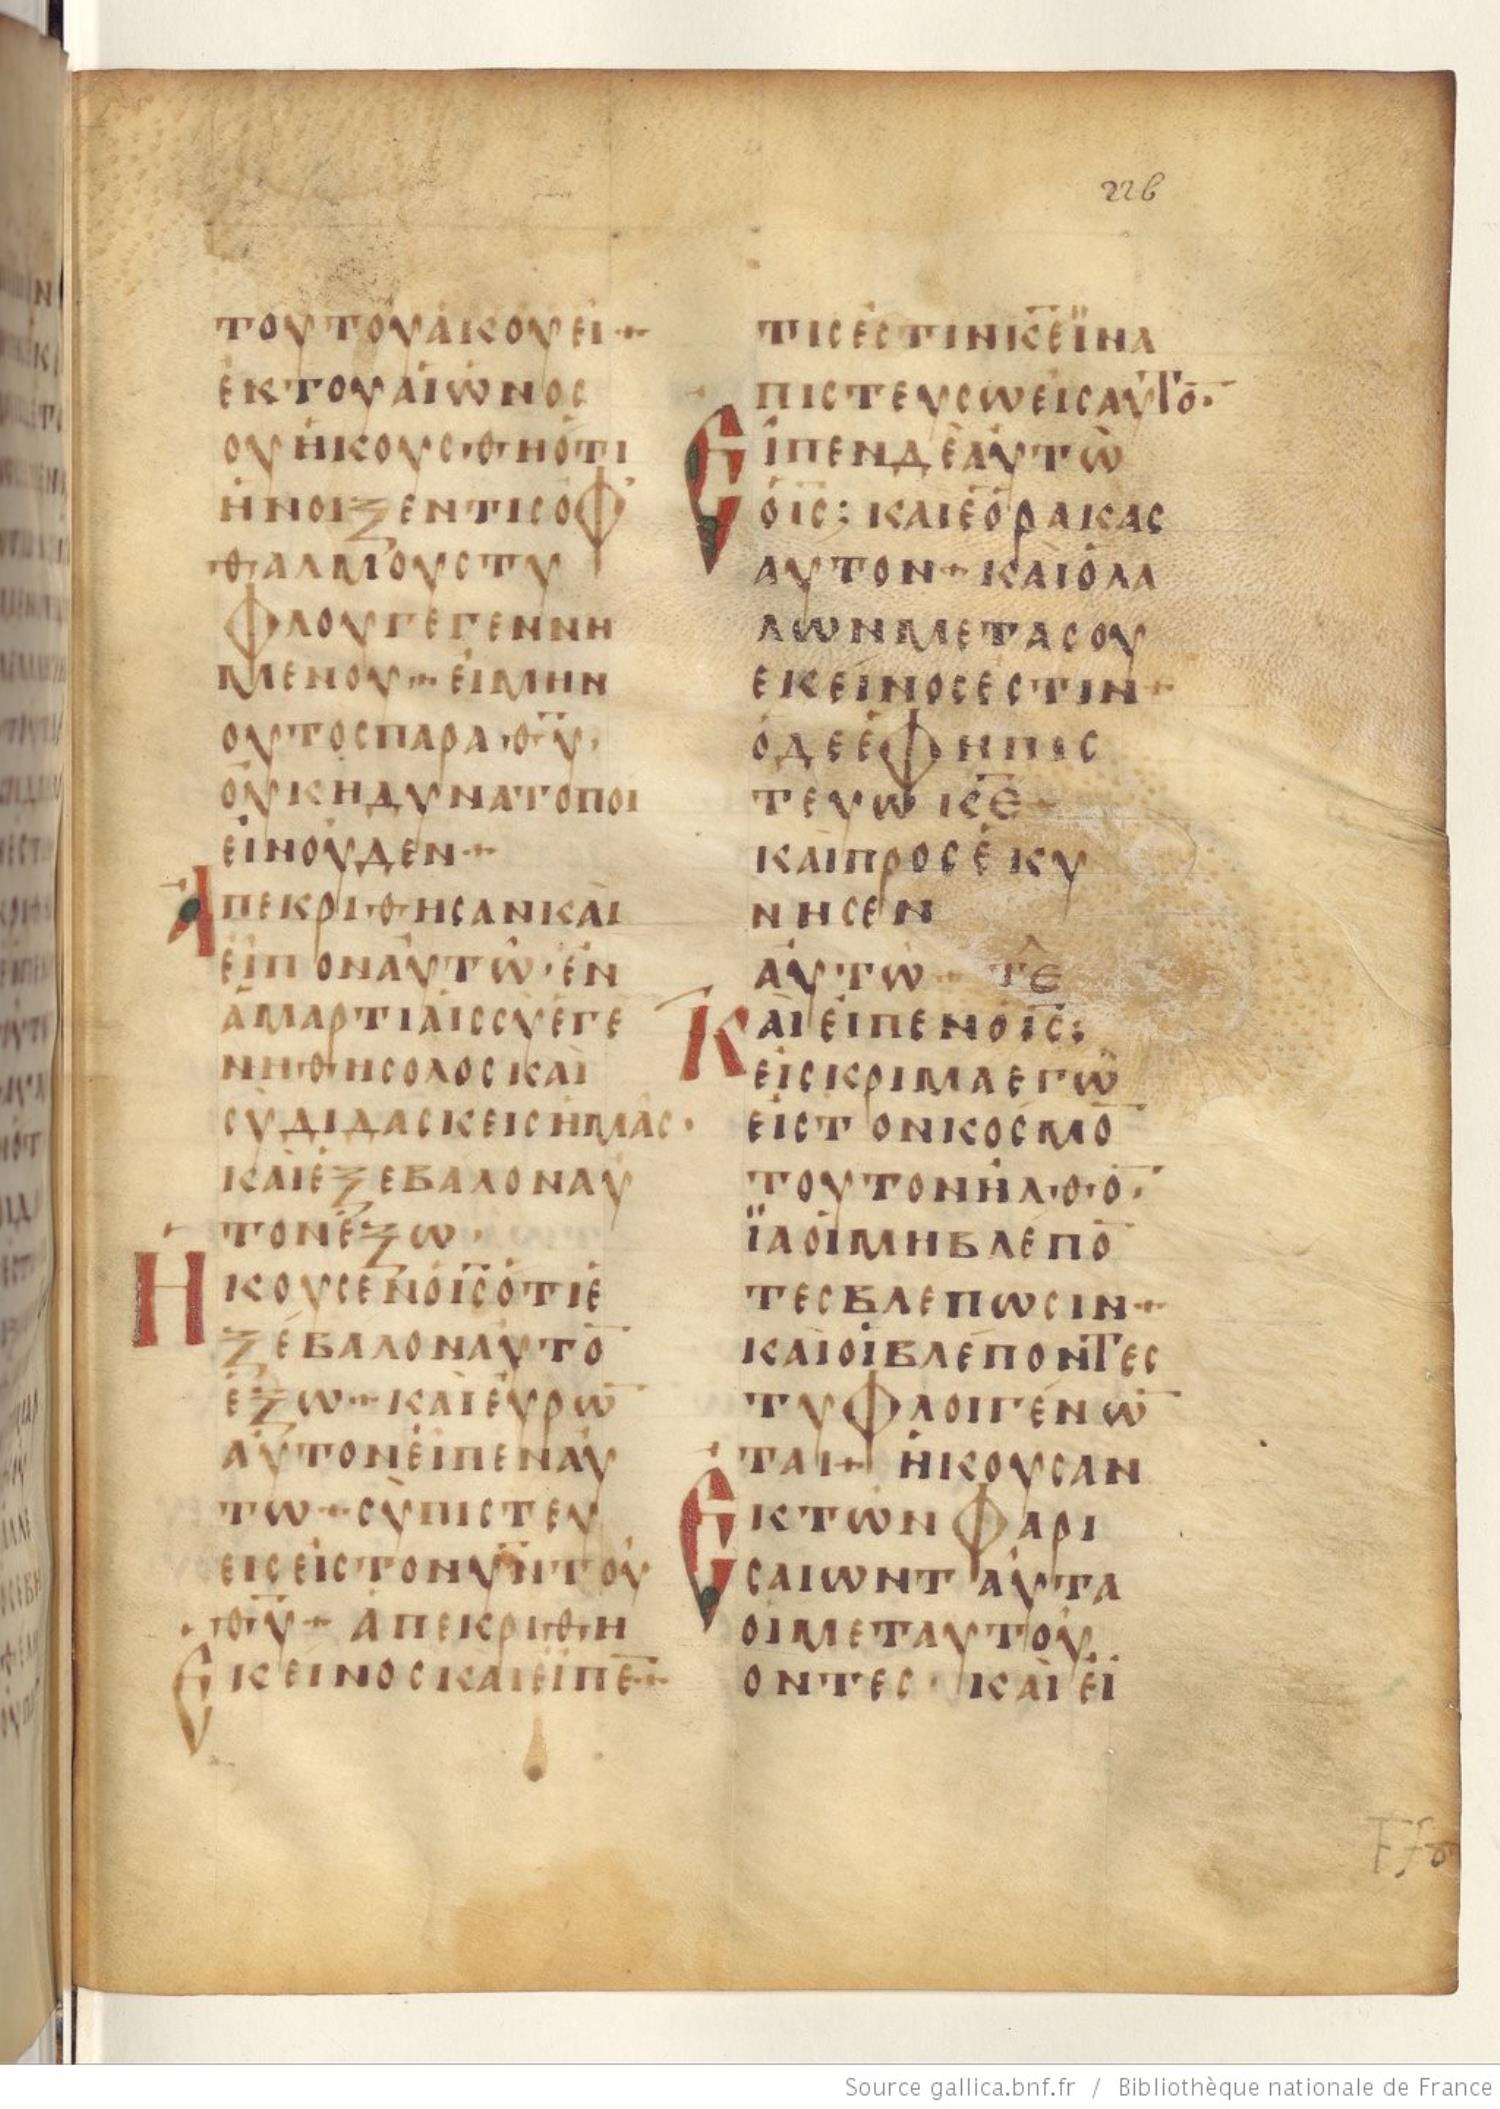 226
ΤΟΥΤΟΥΑΚΟΥΕΙ+
ΕΚΤΟΥΑΙΩΝΟΣ
ΟΥΗΚΟΥΣΘΗΟΤΙ
ΗΝΟΙΞΕΝΤΙΣΟΦ
ΘΑΛΜΟΥΣΤΥ
ΦΛΟΥΓΕΓΕΝΝΗ
ΜΕΝΟΥ+ΕΙΜΗΝ
ΟΥΤΟΣΠΑΡΑΘ̅Υ̅
ΟΥΚΗΔΥΝΑΤΟΠΟΙ
ΕΙΝΟΥΔΕΝ+
ΑΠΕΚΡΙΘΗΣΑΝΚΑΙ
ΕΙΠΟΝΑΥΤΩ·ΕΝ
ΑΜΑΡΤΙΑΙΣΣΥΕΓΕ
ΝΝΗΘΗΣΟΛΟΣΚΑΙ
ΣΥΔΙΔΑΣΚΕΙΣΗΜΑΣ·
ΚΑΙΕΞΕΒΑΛΟΝΑΥ
ΤΟΝΕΞΩ·
ΗΚΟΥΣΕΝΟΙ̅Σ̅ΟΤΙΕ
ΞΕΒΑΛΟΝΑΥΤΟ̅
ΕΞΩ+ΚΑΙΕΥΡΩ̅
ΑΥΤΟΝΕΙΠΕΝΑΥ
ΤΩ+ΣΥΠΙΣΤΕΥ
ΕΙΣΕΙΣΤΟΝΥ̅Ν̅ΤΟΥ
Θ̅Υ̅+ΑΠΕΚΡΙΘΗ
ΕΚΕΙΝΟΣΚΑΙΕΙΠΕ̅+
ΤΙΣΕΣΤΙΝΚ̅Ε̅ΪΝΑ
ΠΙΣΤΕΥΣΩΕΙΣΑΥΤΟ̅·
ΕΙΠΕΝΔΕΑΥΤΩ
ΟΙ̅Σ̅: ΚΑΙΕΟΡΑΚΑΣ
ΑΥΤΟΝ+ΚΑΙΟΛΑ
ΛΩΝΜΕΤΑΣΟΥ
ΕΚΕΙΝΟΣΕΣΤΙΝ+
ΟΔΕΕΦΗΠΙΣ
ΤΕΥΩ Κ̅Ε̅
ΚΑΙΠΡΟΣΕΚΥ
ΝΗΣΕΝ
ΑΥΤΩ+ ΤΕ
ΚΑΙΕΙΠΕΝΟΙ̅Σ̅:
ΕΙΣΚΡΙΜΑΕΓΩ
ΕΙΣΤΟΝΚΟΣΜΟ̅
ΤΟΥΤΟΝΗΛΘΟ̅·
ΪΑΟΙΜΗΒΛΕΠΟ̅
ΤΕΣΒΛΕΠΩΣΙΝ+
ΚΑΙΟΙΒΛΕΠΟΝΤΕΣ
ΤΥΦΛΟΙΓΕΝΩ̅
ΤΑΙ+ ΗΚΟΥΣΑΝ
ΕΚΤΩΝΦΑΡΙ
ΣΑΙΩΝΤΑΥΤΑ
ΟΙΜΕΤΑΥΤΟΥ
ΟΝΤΕΣ· ΚΑΙΕΙ
Source gallica.bnf.fr / Bibliothèque nationale de France